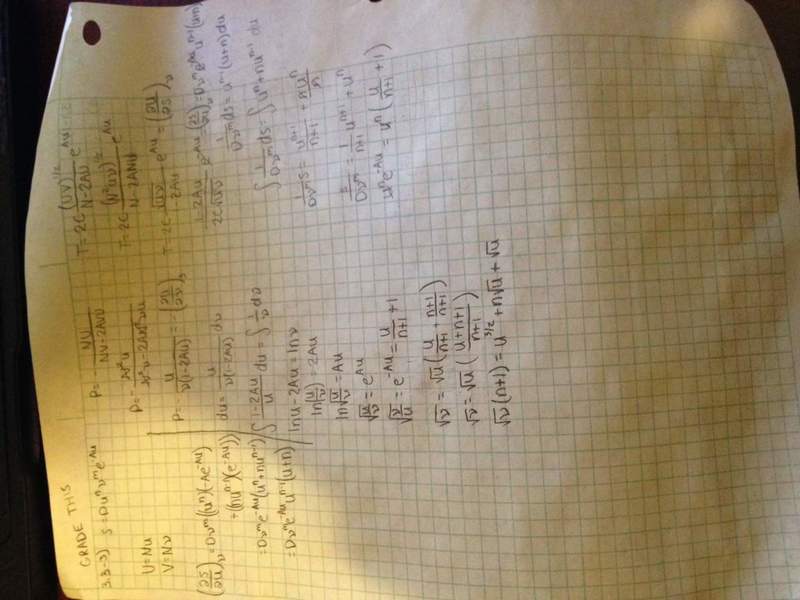 GRADE THIS
3.3-3) S=Du^n v^m e^-Au
U=Nu
V=Nv
(∂S/∂u)_v = Dv^m((u^n)(-Ae^-Au)
+(nu^n-1)(e^-Au))
=Dv^m e^-Au(u^n+nu^n-1)
=Dv^m e^-Au u^n-1(u+n)
P=- NU/(NV-2AVU)
P=- N^2u/(N^2v-2AN^2vu)
P=- u/(v(1-2Au)) = -(∂u/∂v)_s
du = u/(v(1-2Au)) dv
∫ (1-2Au)/u du = ∫ 1/v dv
ln u - 2Au = ln v
ln(u/v) = 2Au
ln√(u/v) = Au
√(u/v) = e^Au
√(v/u) = e^-Au = u/(n+1) + 1
√v = √u (u/(n+1) + (n+1)/(n+1))
√v = √u ((u+n+1)/(n+1))
√v (n+1) = u^3/2 + n√u + √u
T=2C (UV)^1/2/(N-2AU) e^AU/N
T=2C (N^2uv)^1/2/(N-2ANu) e^Au
T=2C √(uv)/(1-2Au) e^Au = (∂u/∂s)_v
(1-2Au)/(2C√(uv)) e^-Au = (∂S/∂u)_v = Dv^m e^-Au u^n-1(u+n)
1/(Dv^m) ds = u^n-1(u+n)du
∫ 1/(Dv^m) ds = ∫ u^n+nu^n-1 du
1/(Dv^m) S = u^n+1/(n+1) + nu^n/n
S/(Dv^m) = 1/(n+1) u^n+1 + u^n
u^n e^-Au = u^n (u/(n+1) + 1)